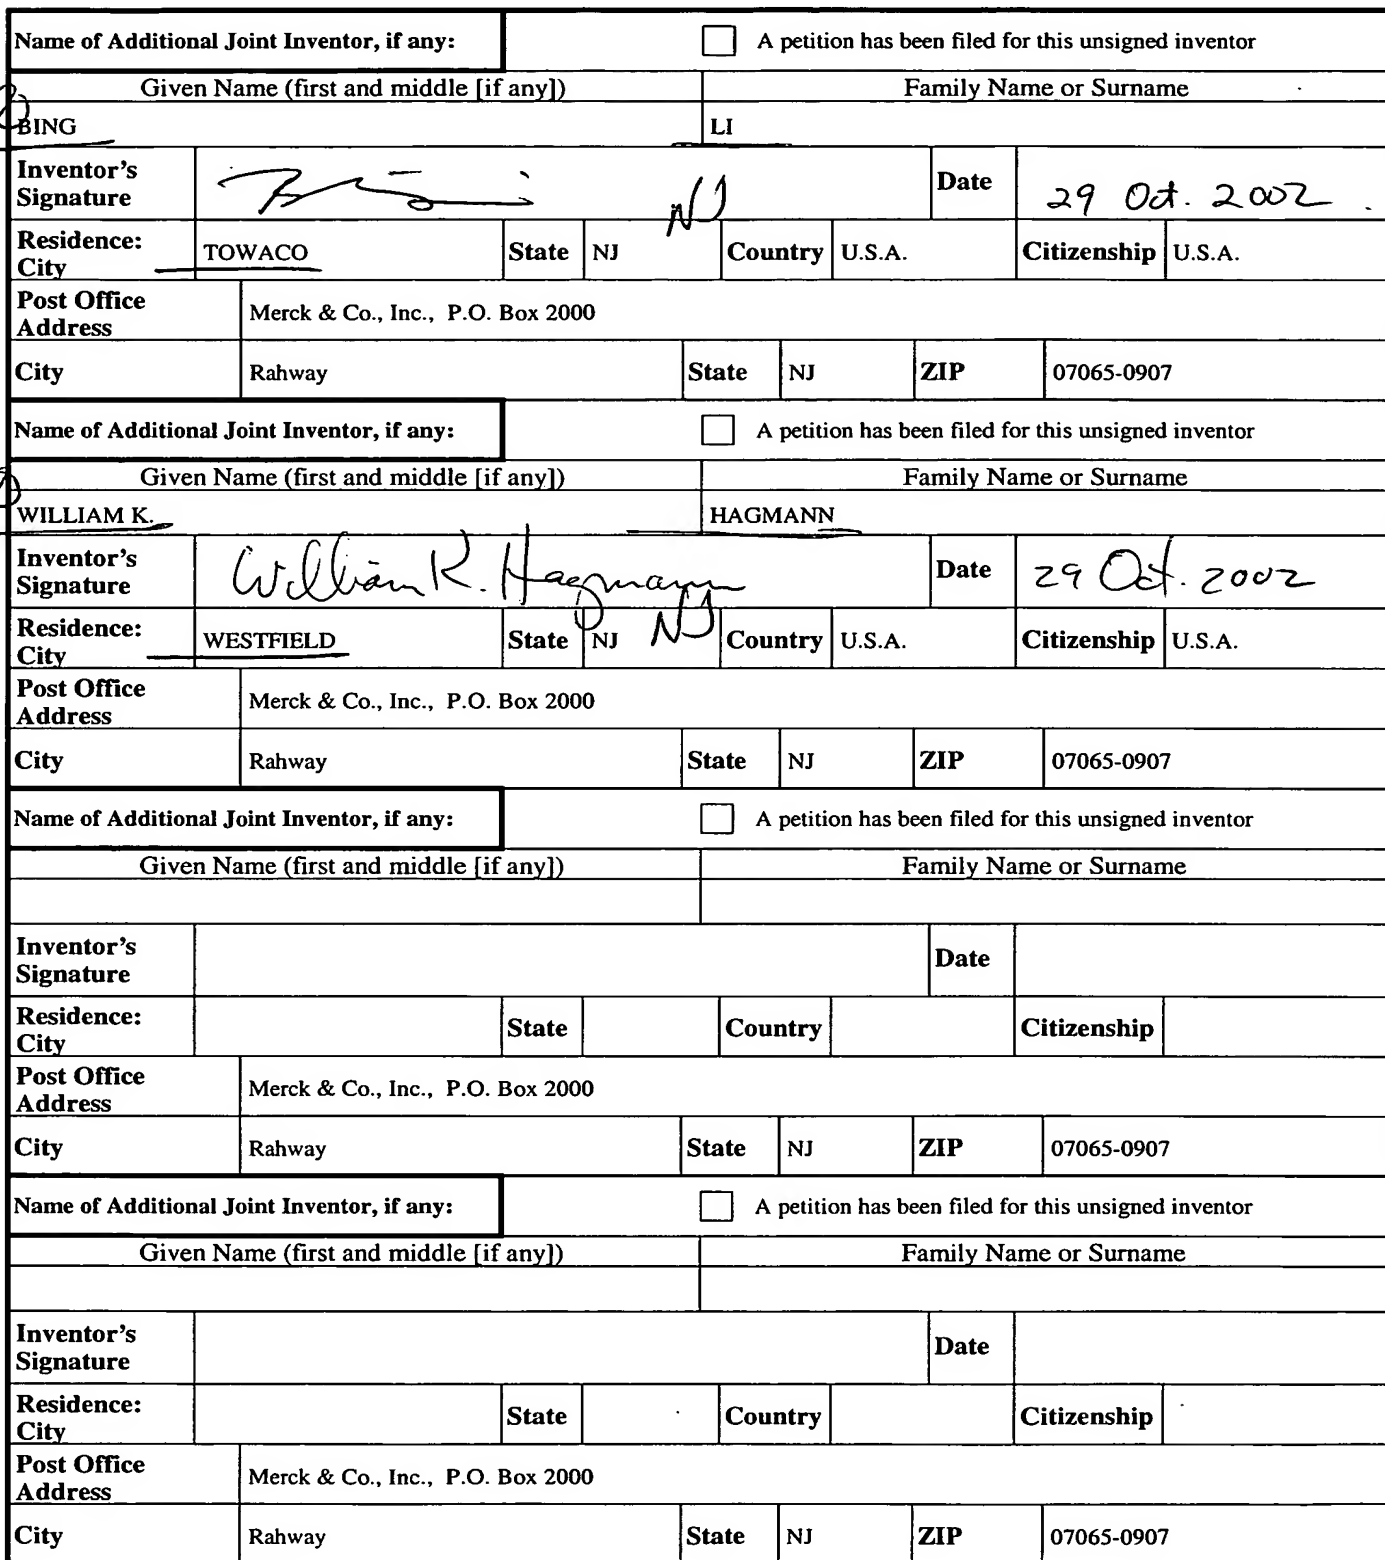 Name of Additional Joint Inventor, if any: A petition has been filed for this unsigned inventor
Given Name (first and middle [if any]) Family Name or Surname
BING LI
Inventor's Signature Date 29 Oct. 2002
NJ
Residence: City TOWACO State NJ Country U.S.A. Citizenship U.S.A.
Post Office Address Merck & Co., Inc., P.O. Box 2000
City Rahway State NJ ZIP 07065-0907
Name of Additional Joint Inventor, if any: A petition has been filed for this unsigned inventor
Given Name (first and middle [if any]) Family Name or Surname
WILLIAM K. HAGMANN
Inventor's Signature William K. Hagmann Date 29 Oct. 2002
Residence: City WESTFIELD State NJ NJ Country U.S.A. Citizenship U.S.A.
Post Office Address Merck & Co., Inc., P.O. Box 2000
City Rahway State NJ ZIP 07065-0907
Name of Additional Joint Inventor, if any: A petition has been filed for this unsigned inventor
Given Name (first and middle [if any]) Family Name or Surname
Inventor's Signature Date
Residence: City State Country Citizenship
Post Office Address Merck & Co., Inc., P.O. Box 2000
City Rahway State NJ ZIP 07065-0907
Name of Additional Joint Inventor, if any: A petition has been filed for this unsigned inventor
Given Name (first and middle [if any]) Family Name or Surname
Inventor's Signature Date
Residence: City State Country Citizenship
Post Office Address Merck & Co., Inc., P.O. Box 2000
City Rahway State NJ ZIP 07065-0907